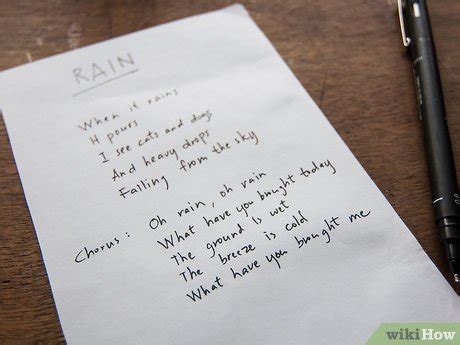 RAIN
When it rains
It pours
I see cats and dogs
And heavy drops
Falling from the sky
Chorus: Oh rain, oh rain
What have you bought today
The ground is wet
The breeze is cold
What have you bought me
wikiHow